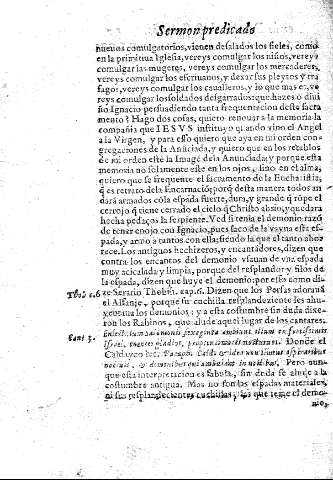 Sermon predicado
nueuos comulgatorios, vienen desalados los fieles, como
en la primitiua Iglesia, vereys comulgar los niños, vereys
comulgar las mugeres, vereys comulgar los mercaderes,
vereys comulgar los escriuanos, y dexar sus pleytos y tra
fagos, vereys comulgar los caualleros, y lo que mas es, ve
reys comulgar los soldados desgarrados: que hazes o diui
no Ignacio persuadiendo tanta frequentacion deste sacra
mento? Hago dos cosas, quiero renouar a la memoria la
compañia que IESVS instituyo quando vino el Angel
a la Virgen, y para esso quiero que aya en mi orden con
gregaciones de la Anūciada, y quiero que en los retablos
de mi orden estè la Imagē de la Anunciada: y porque esta
memoria no solamente este en los ojos, sino en el alma,
quiero que se frequente el sacramento de la Eucharistia,
q̃ es retrato de la Encarnació; porq̃ desta manera todos an
dará armados cō la espada fuerte, dura, y grande q̃ rōpe el
cerrojo q̃ tiene cerrado el cielo q̃ Christo abrio, y quedara
hecha pedaços la serpiente. Ved si tenia el demonio razō
de tener enojo con Ignacio, pues saco de la vayna esta es-
pada, y armo a tantos con ella siendo la que el tanto abor
rece. Los antiguos hechizeros, y encantadores, dizen que
contra los encantos del demonio vsauan de vna espada
muy acicalada y limpia, porque del resplandor y filos de
la espada, dizen que huye el demonio: por esso como di-
ze Serario Thobię. cap. 6. Dizen que los Persas adorauā
el Alfanje, porque su cuchilla resplandeziente les ahu-
yentaua los demonios: y a esta costumbre sin duda dixe-
ron los Rabinos, que alude aquel lugar de los cantares.
Thob. c. 6
Cant 3.
Israel, Donde el
noctuis, & demonibus qui ambulant in noctibus. Pero aun
que esta interpretacion es fabula, sin duda se alude a la
costumbre antigua. Mas no son las espadas materiales,
ni sus resplandecientes cuchillas, las que teme el demo-
nio,